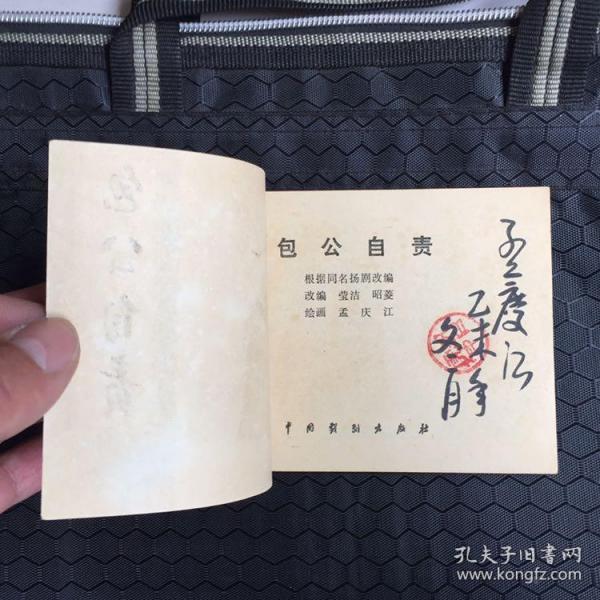 包公自责
包公自责
根据同名扬剧改编
改编 莹洁 昭菱
绘画 孟庆江
中国戏剧出版社
孟庆江
乙未
孔夫子旧书网
www.kongfz.com